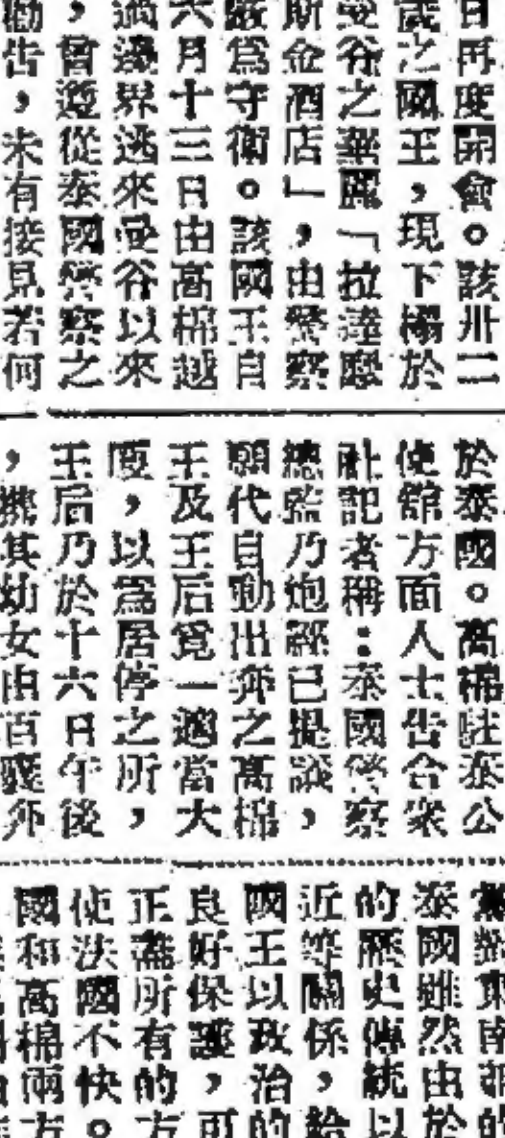 日再度開會。該卅二
歲之國王,現下榻於
曼谷之華麗「拉達孻
斯金酒店」,由警察
嚴為守衛。該國王自
六月十三日由高棉越
過邊界逃來曼谷以來
,曾遵從泰國警察之
勸告,未有接見若何
於泰國。高棉駐泰公
使館方面人士告合眾
社記者稱:泰國警察
總監乃炮經已提議,
願代自動出奔之高棉
王及王后覓一適當大
厦,以為居停之所,
王后乃於十六日午後
,携其幼女由百囊奔
黨對東南部的
泰國雖然由於
的歷史傳統以
近等關係,給
國王以政治的
良好保護,可
正盡所有的方
使法國不快。
國和高棉兩方